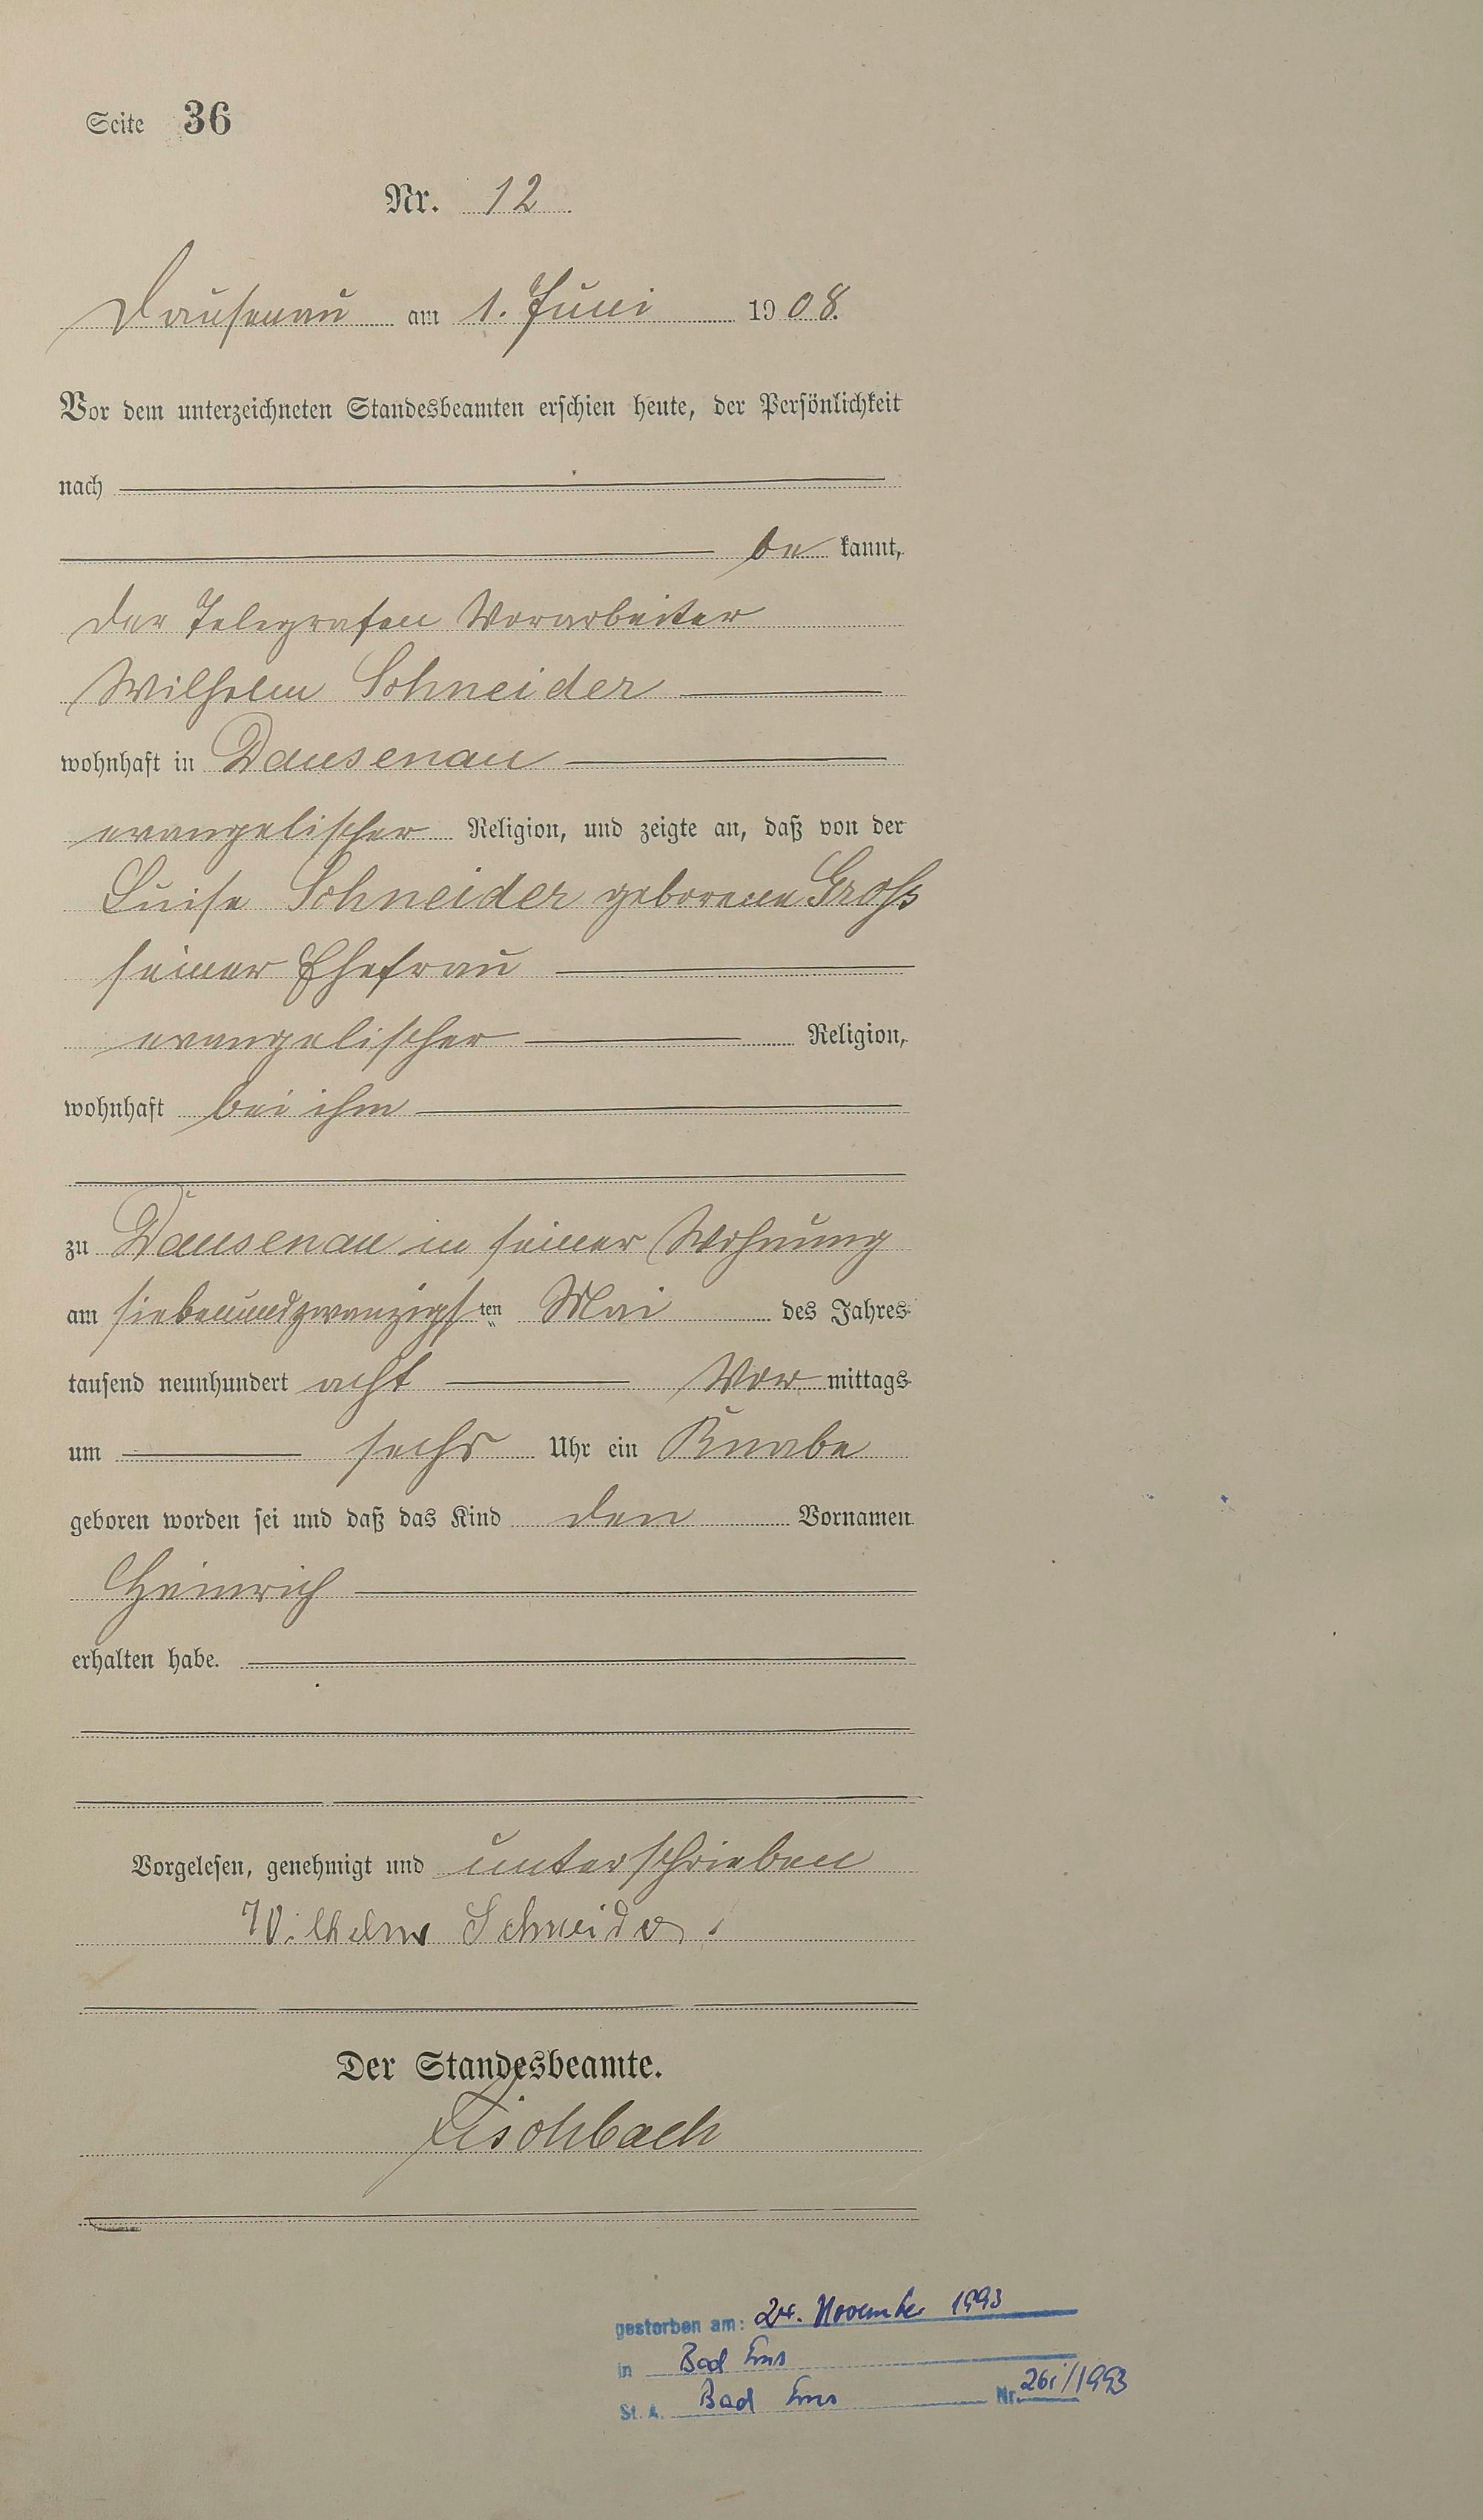 Seite 36
Nr. 12
Dausenau am 1. Juni 1908.
Vor dem unterzeichneten Standesbeamten erschien heute, der Persönlichkeit
nach
be kannt,
der Telegrafen Vorarbeiter
Wilhelm Schneider
wohnhaft in Dausenau
evangelischer Religion, und zeigte an, daß von der
Luise Schneider geborene Groß
seiner Ehefrau
evangelischer Religion,
wohnhaft bei ihm
zu Dausenau in seiner Wohnung
am siebenundzwanzigsten Mai des Jahres
tausend neunhundert acht Vormittags
um sechs Uhr ein Knabe
geboren worden sei und daß das Kind den Vornamen
Heinrich
erhalten habe.
Vorgelesen, genehmigt und unterschrieben
Wilhelm Schneider.
Der Standesbeamte.
Fischbach
gestorben am: November 1993
in Bad Ems
St. A. Bad Ems Nr. /1993